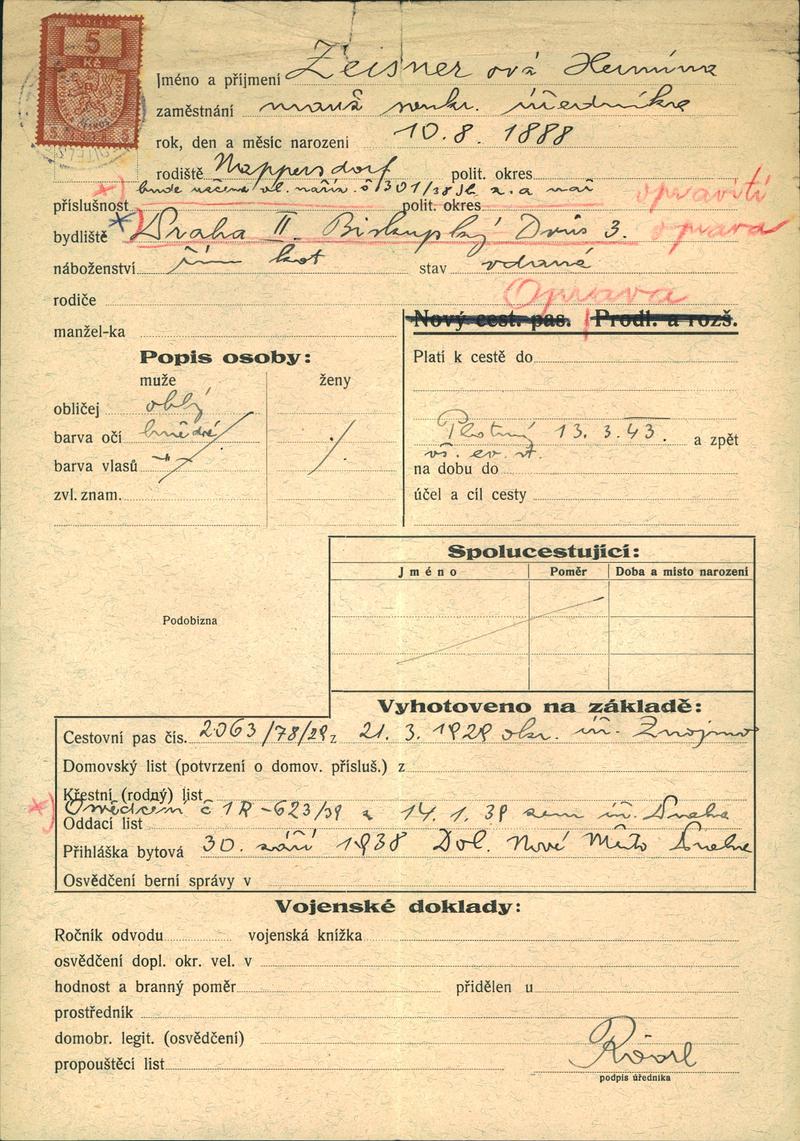 KOLEK
5
Kč
Jméno a příjmení Zeisnerová Hermína
zaměstnání manž. soukr. úředníka
rok, den a měsíc narození 10. 8. 1888
rodiště Mappersdorf polit. okres
bude určena vl. naříz. č 301/38 Sb. z. a nař
příslušnost polit. okres opraviti
bydliště Praha II. Biskupský Dvůr 3. oprava
náboženství řím kat stav vdaná
rodiče Oprava
manžel-ka Nový cest. pas. Prodl. a rozš.
Popis osoby: Platí k cestě do
muže ženy
obličej oblý
barva očí hnědé Platný 13. 3. 43. a zpět
barva vlasů -"- na dobu do
zvl. znam. účel a cíl cesty
Spolucestující:
Jméno Poměr Doba a místo narození
Podobizna
Vyhotoveno na základě:
Cestovní pas čís. 2063/78/29 z 21. 3. 1929 okr. úř. Znojmo
Domovský list (potvrzení o domov. přísluš.) z
Křestní (rodný) list
Osvědčení č 1R-623/39 z 14. 1. 39 zem úř. Praha
Oddací list
Přihláška bytová 30. září 1938 Dol. Nové Město Praha
Osvědčení berní správy v
Vojenské doklady:
Ročník odvodu vojenská knížka
osvědčení dopl. okr. vel. v
hodnost a branný poměr přidělen u
prostředník
domobr. legit. (osvědčení)
propouštěcí list
podpis úředníka